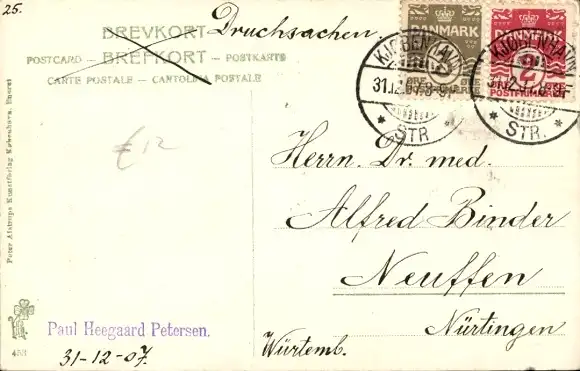 25.
BREVKORT Druchsachen.
POSTCARD – BREFKORT – POSTKARTE
CARTE POSTALE – CARTOLINA POSTALE
DANMARK
DANMARK
KJØBENHAVN
31.12.07. 8-9F
STR.
KJØBENHAVN
31.12.07. 8-9F
STR.
2
€12
Herrn. Dr. med.
Alfred Binder
Neuffen
Nürtingen
Würtemb.
Peter Alstrups Kunstforlag København. Eneret
Paul Heegaard Petersen.
31-12-07.
453